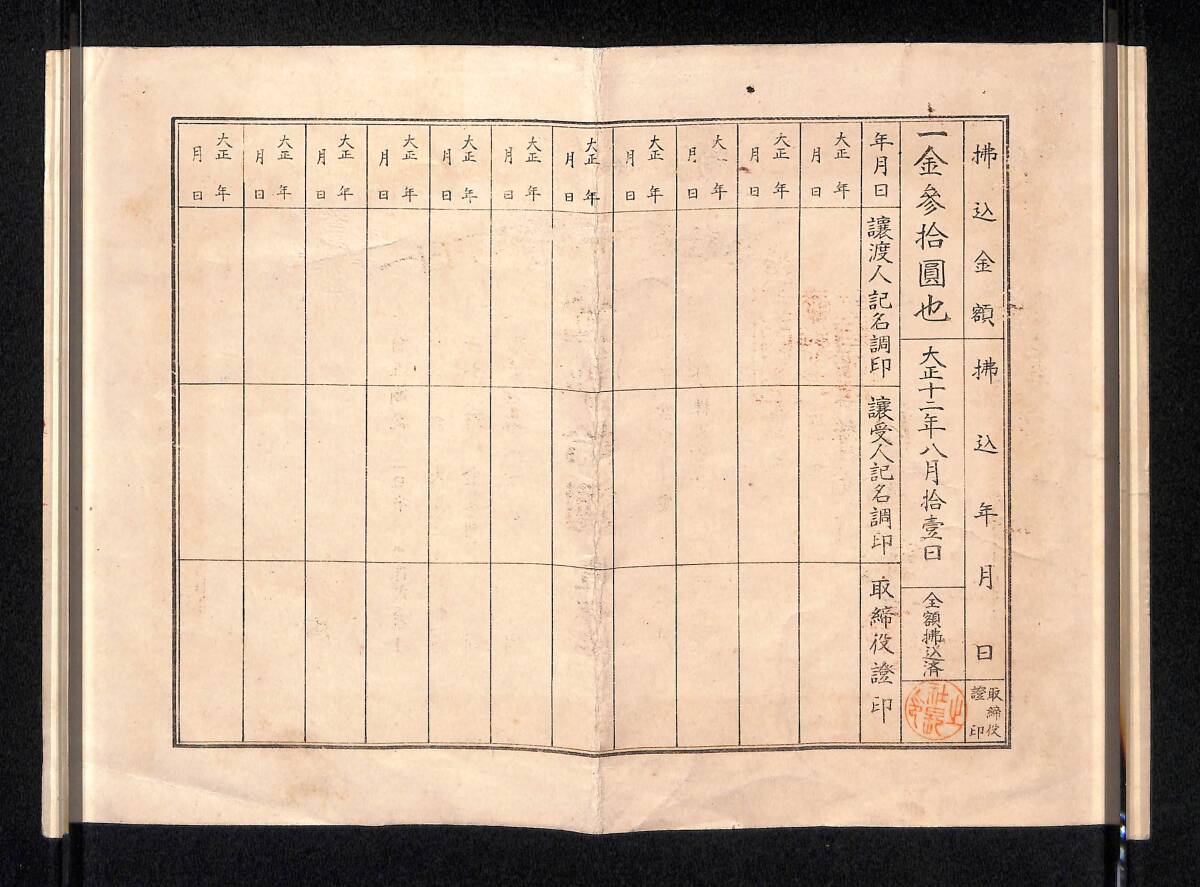 拂込金額
拂込年月日
取締役
證印
一金參拾圓也
大正十二年八月拾壹日
全額拂込濟
社長之印
年月日
讓渡人記名調印
讓受人記名調印
取締役證印
大正　年
月　日
大正　年
月　日
大　年
月　日
大正　年
月　日
大正　年
月　日
大正　年
月　日
大正　年
月　日
大正　年
月　日
大正　年
月　日
大正　年
月　日
大正　年
月　日